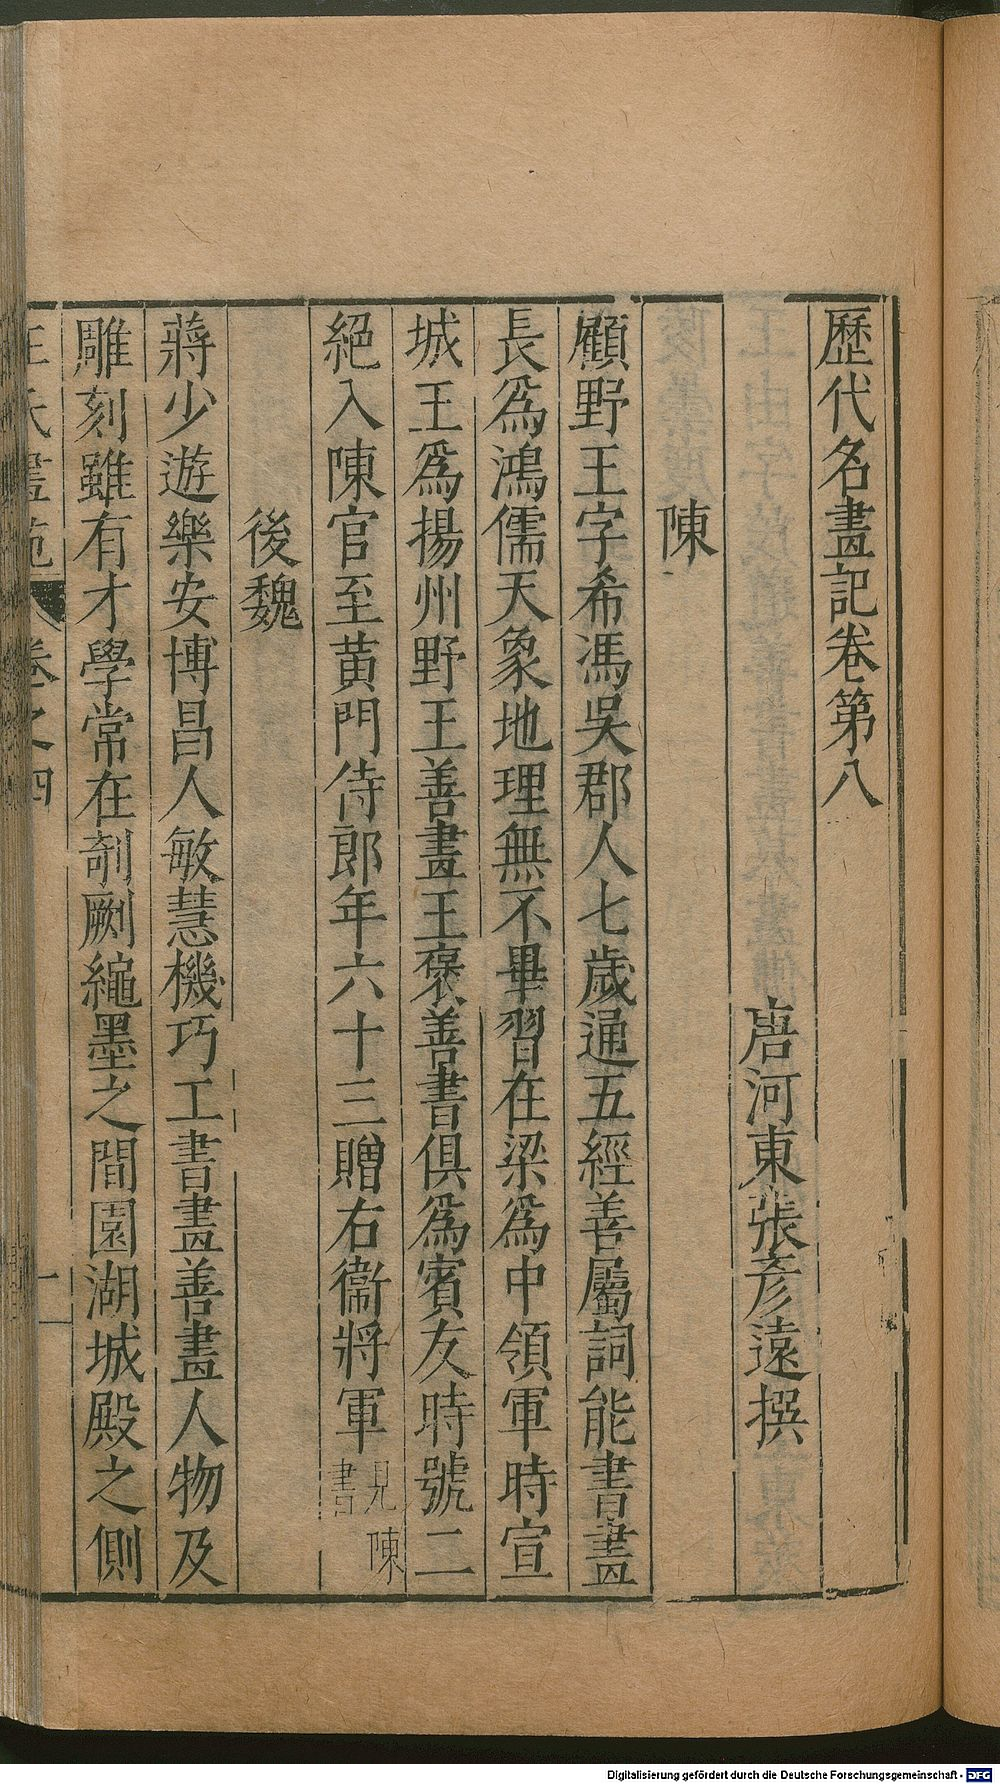 歷代名畫記卷第八
唐河東張彥遠撰
陳
顧野王字希馮吳郡人七歲通五經善屬詞能書畫
長爲鴻儒天象地理無不畢習在梁爲中領軍時宣
城王爲揚州野王善畫王褒善書俱爲賓友時號二
絕入陳官至黃門侍郎年六十三贈右衞將軍見陳書
後魏
蔣少遊樂安博昌人敏慧機巧工書畫善畫人物及
雕刻雖有才學常在剞劂繩墨之間園湖城殿之側
王氏畫苑 卷之四 一
Digitalisierung gefördert durch die Deutsche Forschungsgemeinschaft - DFG